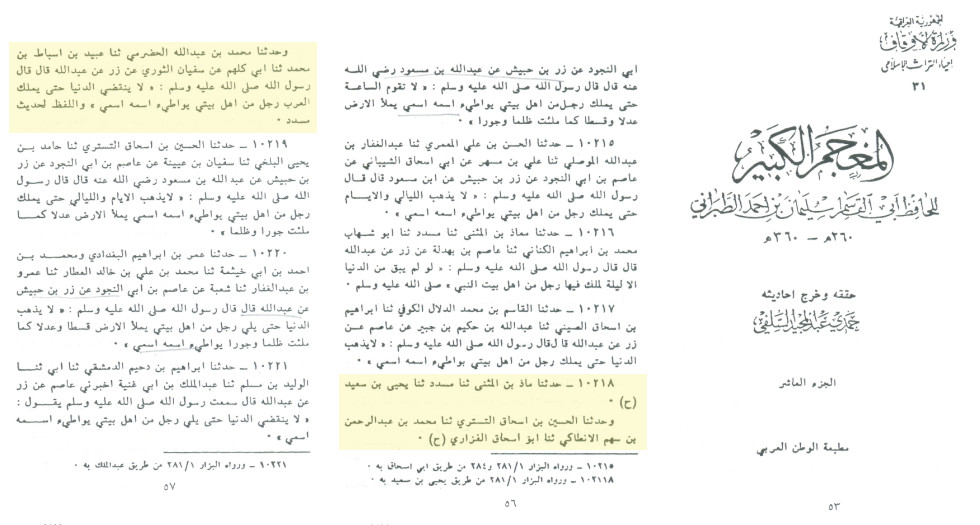 الجمهورية العراقية
وزارة الأوقاف
احياء التراث الاسلامي
٣١
المعجم الكبير
للحافظ أبي القاسم سليمان بن احمد الطبراني
٢٦٠هـ – ٣٦٠هـ
حققه وخرج احاديثه
حمدي عبد المجيد السلفي
الجزء العاشر
مطبعة الوطن العربي
٥٣
ابي النجود عن زر بن حبيش عن عبدالله بن مسعود رضي الله
عنه قال قال رسول الله صلى الله عليه وسلم : « لا تقوم الساعة
حتى يملك رجل من اهل بيتي يواطيء اسمه اسمي يملأ الارض
عدلا وقسطا كما ملئت ظلما وجورا » ٠
١٠٢١٥ – حدثنا الحسن بن علي المعمري ثنا عبدالغفار بن
عبدالله الموصلي ثنا علي بن مسهر عن ابي اسحاق الشيباني عن
عاصم بن ابي النجود عن زر بن حبيش عن ابن مسعود قال قال
رسول الله صلى الله عليه وسلم : « لا يذهب الليالي والايام
حتى يملك رجل من اهل بيتي يواطيء اسمه اسمي » ٠
١٠٢١٦ – حدثنا معاذ بن المثنى ثنا مسدد ثنا ابو شهاب
محمد بن ابراهيم الكناني ثنا عاصم بن بهدلة عن زر عن عبدالله
قال قال رسول الله صلى الله عليه وسلم : « لو لم يبق من الدنيا
الا ليلة لملك فيها رجل من اهل بيت النبي » صلى الله عليه وسلم ٠
١٠٢١٧ – حدثنا القاسم بن محمد الدلال الكوفي ثنا ابراهيم
بن اسحاق الصيني ثنا عبدالله بن حكيم بن جبير عن عاصم عن
زر عن عبدالله قا لقال رسول الله صلى الله عليه وسلم : « لايذهب
الدنيا حتى يملك رجل من اهل بيتي يواطيء اسمه اسمي » ٠
١٠٢١٨ – حدثنا ماذ بن المثنى ثنا مسدد ثنا يحيى بن سعيد
(ح) ٠
وحدثنا الحسين بن اسحاق التستري ثنا محمد بن عبدالرحمن
بن سهم الانطاكي ثنا ابو اسحاق الفزاري (ح) ٠
١٠٢١٥ – ورواه البزار ٢٨١/١ و٢٨٤ من طريق ابي اسحاق به ٠
١٠٢١١٨ – ورواه البزار ٢٨١/١ من طريق يحيى بن سعيد به ٠
٥٦
وحدثنا محمد بن عبدالله الحضرمي ثنا عبيد بن اسباط بن
محمد ثنا ابي كلهم عن سفيان الثوري عن زر عن عبدالله قال قال
رسول الله صلى الله عليه وسلم : « لا ينقضي الدنيا حتى يملك
العرب رجل من اهل بيتي يواطيء اسمه اسمي » واللفظ لحديث
مسدد ٠
١٠٢١٩ – حدثنا الحسين بن اسحاق التستري ثنا حامد بن
يحيى البلخي ثنا سفيان بن عيينة عن عاصم بن ابي النجود عن زر
بن حبيش عن عبدالله بن مسعود رضي الله عنه قال قال رسول
الله صلى الله عليه وسلم : « لايذهب الايام والليالي حتى يملك
رجل من اهل بيتي يواطيء اسمه اسمي يملأ الارض عدلا كما
ملئت جورا وظلما » ٠
١٠٢٢٠ – حدثنا عمر بن ابراهيم البغدادي ومحمد بن
احمد بن ابي خيثمة ثنا محمد بن علي بن خالد العطار ثنا عمرو
بن عبدالغفار ثنا شعبة عن عاصم بن ابي النجود عن زر بن حبيش
عن عبدالله قال قال رسول الله صلى الله عليه وسلم : « لا يذهب
الدنيا حتى يلي رجل من اهل بيتي يملأ الارض قسطا وعدلا كما
ملئت ظلما وجورا يواطيء اسمه اسمي » ٠
١٠٢٢١ – حدثنا ابراهيم بن دحيم الدمشقي ثنا ابي ثنا
الوليد بن مسلم ثنا عبدالملك بن ابي غنية اخبرني عاصم عن زر
عن عبدالله قال سمعت رسول الله صلى الله عليه وسلم يقول :
« لا ينقضي الدنيا حتى يلي رجل من اهل بيتي يواطيء اسمه
اسمي » ٠
١٠٢٢١ – ورواه البزار ٢٨١/١ من طريق عبدالملك به ٠
٥٧